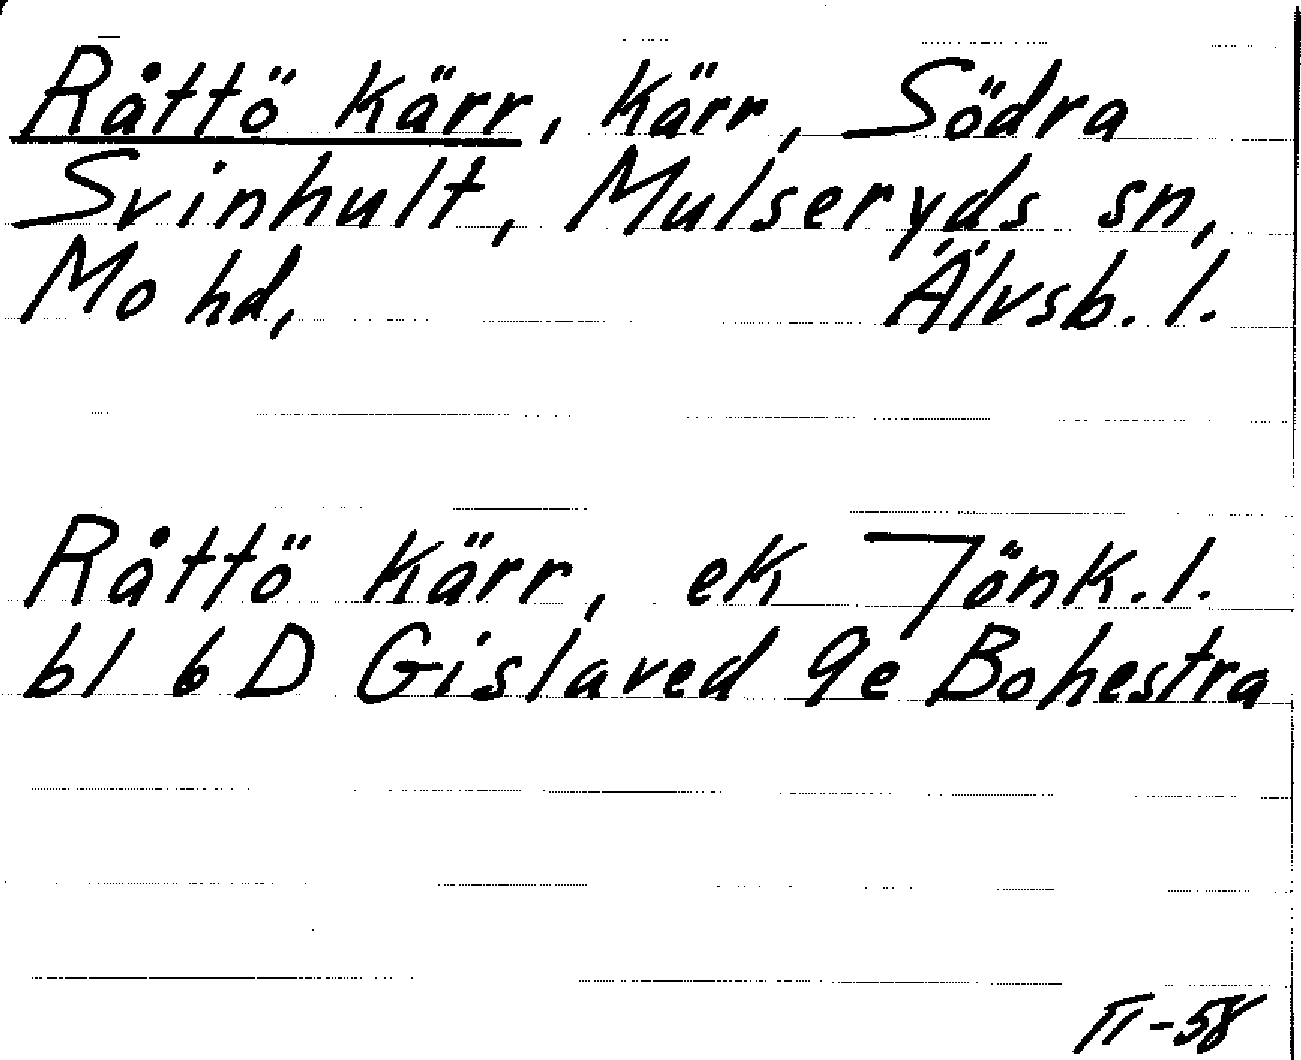 Råttö Kärr, Kärr, Södra
Svinhult, Mulseryds sn,
Mo hd, Älvsb. l.
Råttö Kärr, ek Jönk. l.
bl 6 D Gislaved 9e Bohestra
VI-58